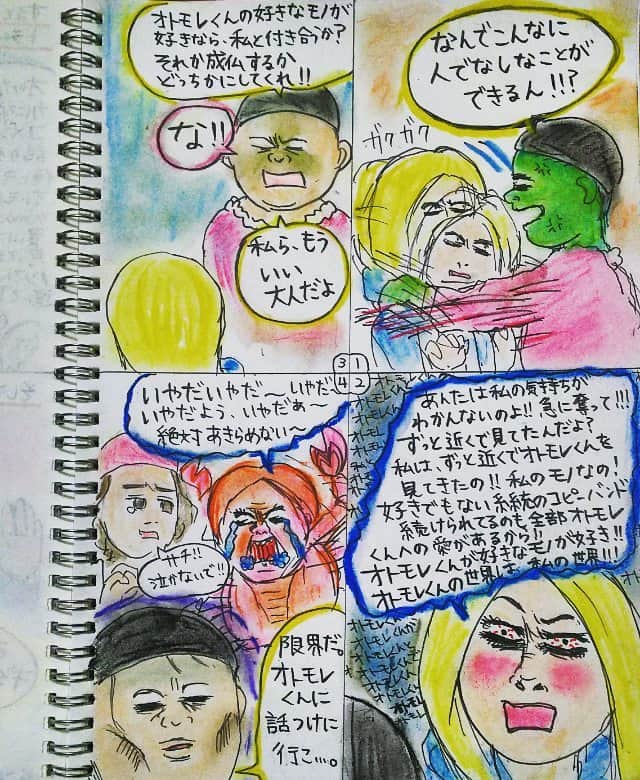 なんでこんなに
人でなしなことが
できるん!!!?
ガクガク
あんたは私の気持ちが
わかんないのよ!!急に奪って!!!
ずっと近くで見てたんだよ?
私は、ずっと近くでオトモレくんを
見てきたの!!私のモノなの!
好きでもない系統のコピーバンド
続けられてるのも全部オトモレ
くんへの愛があるから!!
オトモレくんが好きなモノが好き!!
オトモレくんの世界は、私の世界!!!
オトモレくんの好きなモノが
好きなら、私と付き合うか?
それか成仏するか
どっちかにしてくれ!!
な!!
私ら、もう
いい
大人だよ
3 1
4 2
いやだいやだ〜いやだ〜
いやだよう、いやだぁ〜
絶対あきらめない〜
サチ!!
泣かないで!!
限界だ。
オトモレ
くんに
話つけに
行こ…。